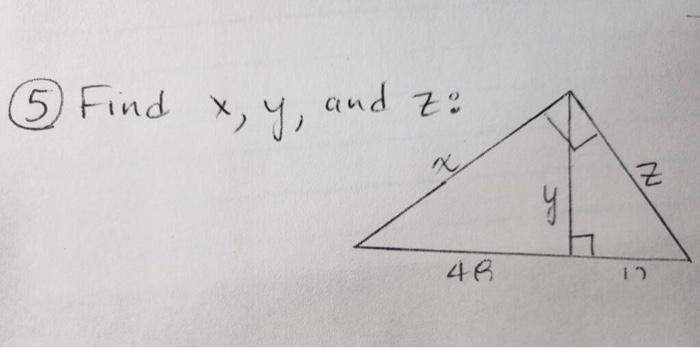 5 Find x, y, and z:
x
y
z
48